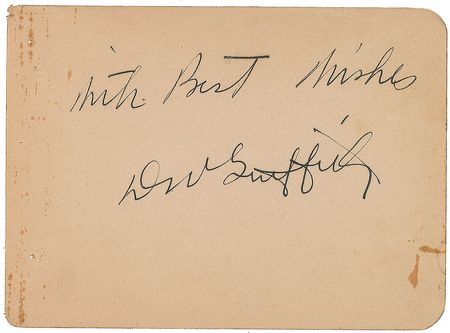 With Best Wishes
DW Griffith